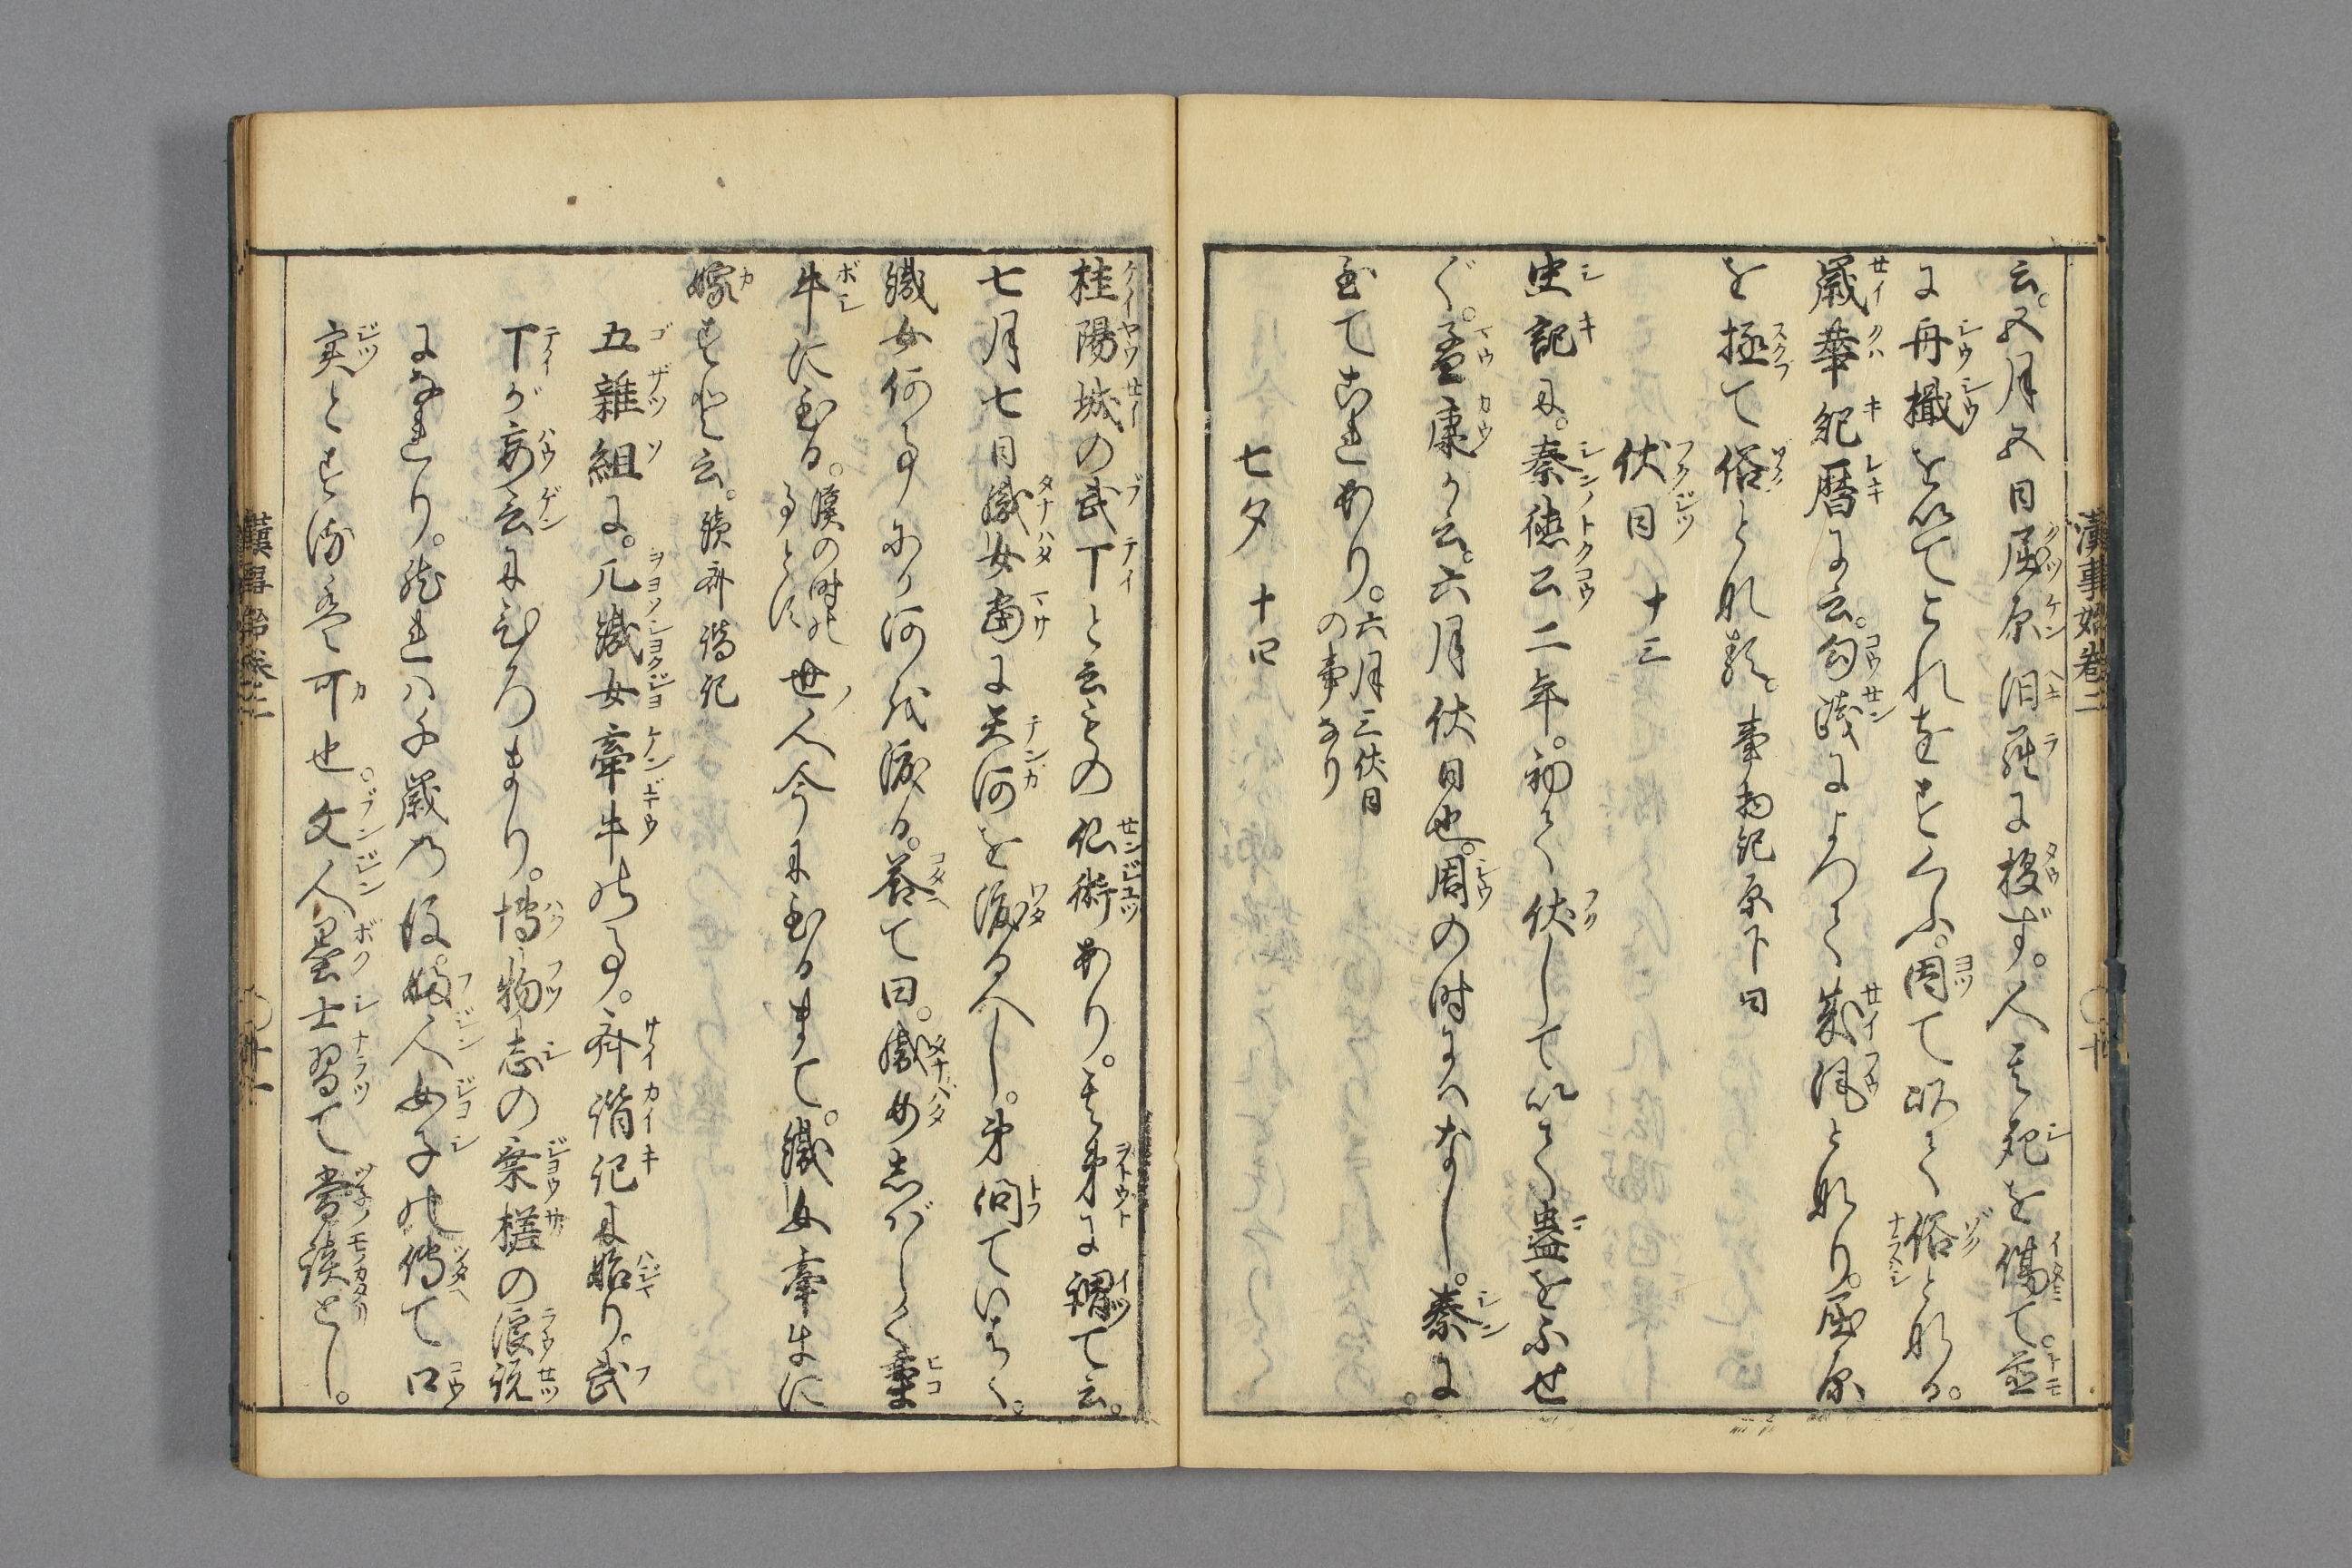 漢事始巻二
云。五月五日屈原汨羅に投ず。人其死を傷て。並
に舟檝を以てこれをすくふ。因て以て俗となる。
歳華紀暦に云。勾践によつて菜風となり。屈原
を拯て俗となれり。事物紀原下同
伏日 十三
史記に。秦徳公二年。初て伏して以て蠱をふせ
ぐ。孟康が云。六月伏日也。周の時にハなし。秦に
至てこれあり。六月三伏日
の事なり
七夕 十四
桂陽城の武丁と云もの仙術あり。其弟に謂て云。
七月七日織女當に天河を渡るへし。弟問ていはく。
織女何事ありて河を渡る。答て曰。織女しばらく牽
牛に至る。漢の時の
事とす
世人今に至るまて。織女牽牛に
嫁すと云。續斉諧記
五雑組に。凡織女牽牛の事。斉諧記に始り。武
丁が妄言にひろまり。博物志の乗槎の浪説
になれり。然れハ千歳の後。婦人女子の傳て口
実とする猶可也。文人墨士習て常談とし。
漢事始巻二